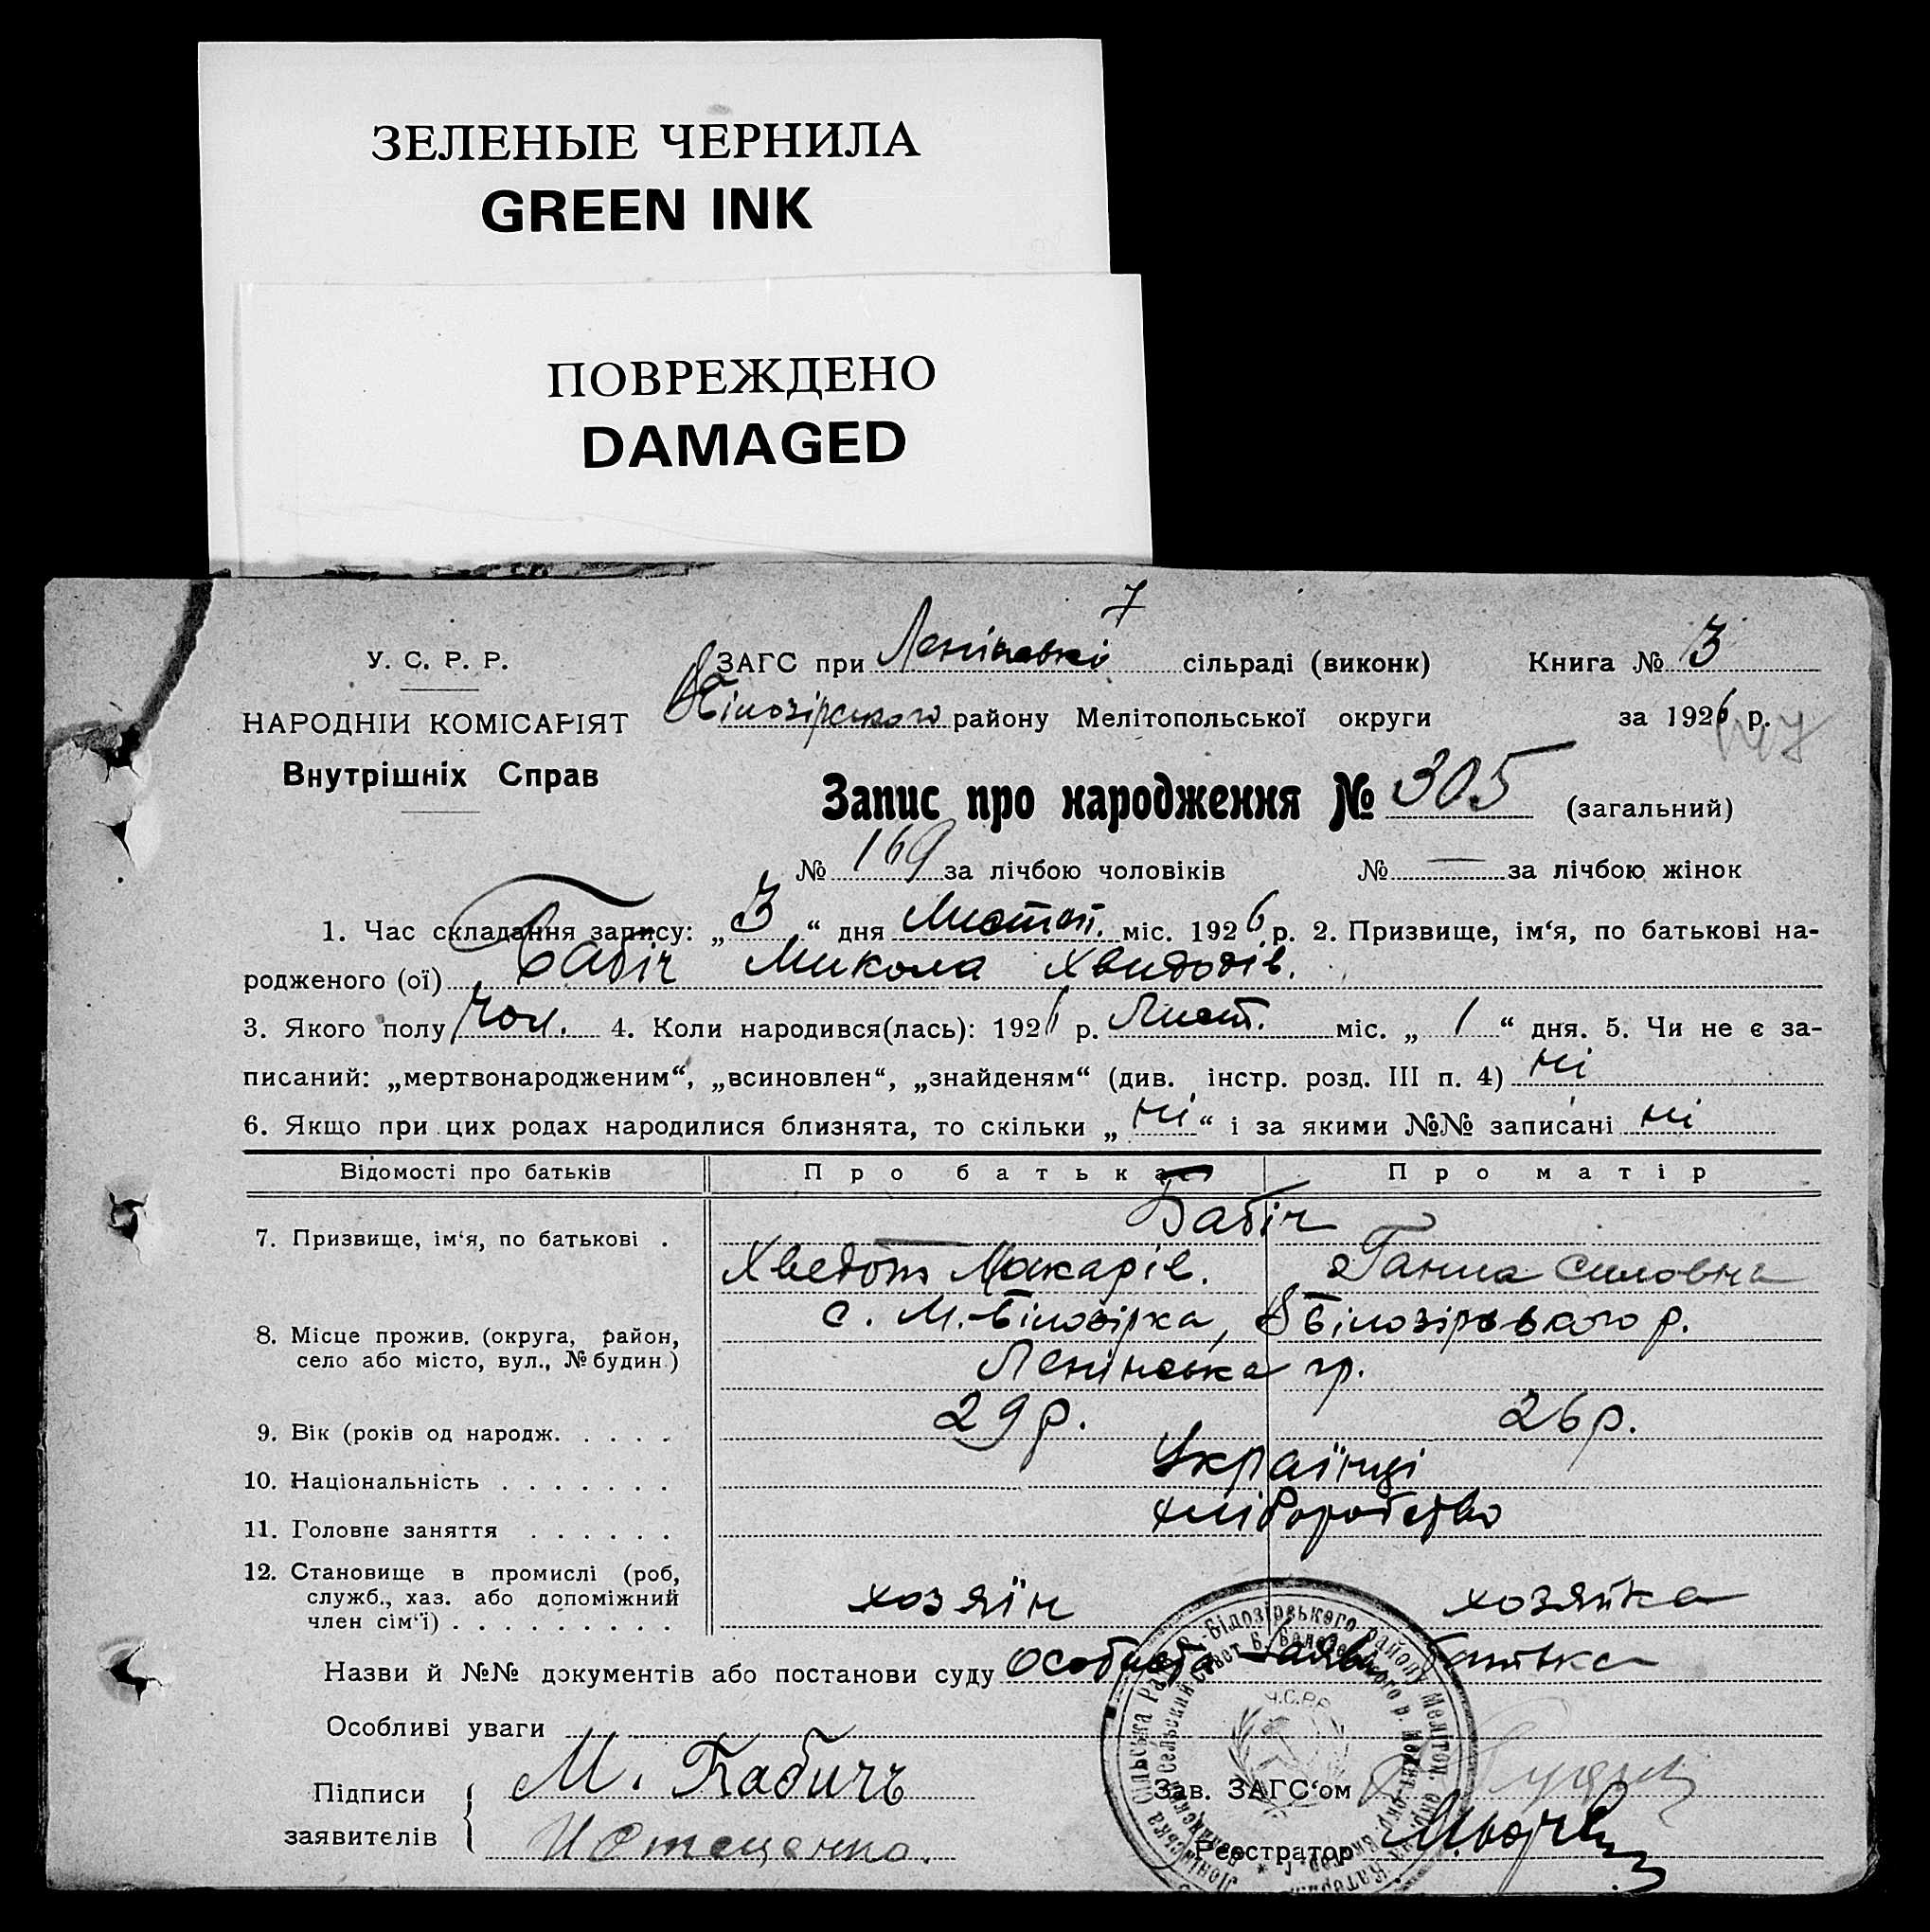 ЗЕЛЕНЫЕ ЧЕРНИЛА
GREEN INK
ПОВРЕЖДЕНО
DAMAGED
7
У. С. Р. Р.
ЗАГС при Ленінській сільраді (виконк) Книга № 3
НАРОДНІЙ КОМІСАРІЯТ
Внутрішніх Справ
Білозірського району Мелітопольської округи за 1926 р.
Запис про народження № 305 (загальний)
№ 169 за лічбою чоловіків № — за лічбою жінок
1. Час складання запису: „3“ дня Листоп. міс. 1926 р. 2. Призвище, ім‘я, по батькові на-
родженого (ої) Бабіч Микола Хведотів.
3. Якого полу чол. 4. Коли народився(лась): 1926 р. Лист. міс. „1“ дня. 5. Чи не є за-
писаний: „мертвонародженим“, „всиновлен“, „знайденям“ (див. інстр. розд. III п. 4) ні
6. Якщо при цих родах народилися близнята, то скільки „ні“ і за якими №№ записані ні
Відомості про батьків Про батька Про матір
7. Призвище, ім‘я, по батькові . Бабіч
Хведот Макарів. Ганна Силовна
8. Місце прожив. (округа, район, с. М.-Білозірка, Білозірського р.
село або місто, вул., № будин.) Ленінська гр.
9. Вік (років од народж. . . . . 29 р. 26 р.
10. Національність . . . . . . . Українці
11. Головне заняття . . . . . . хліборобство
12. Становище в промислі (роб,
служб., хаз. або допоміжний хозяїн хозяйка
член сім‘ї) . . . . . . . . .
Назви й №№ документів або постанови суду особиста заява батька
Особливі уваги
Підписи М. Бабичъ
заявителів
Зав. ЗАГС‘ом
Реєстратор